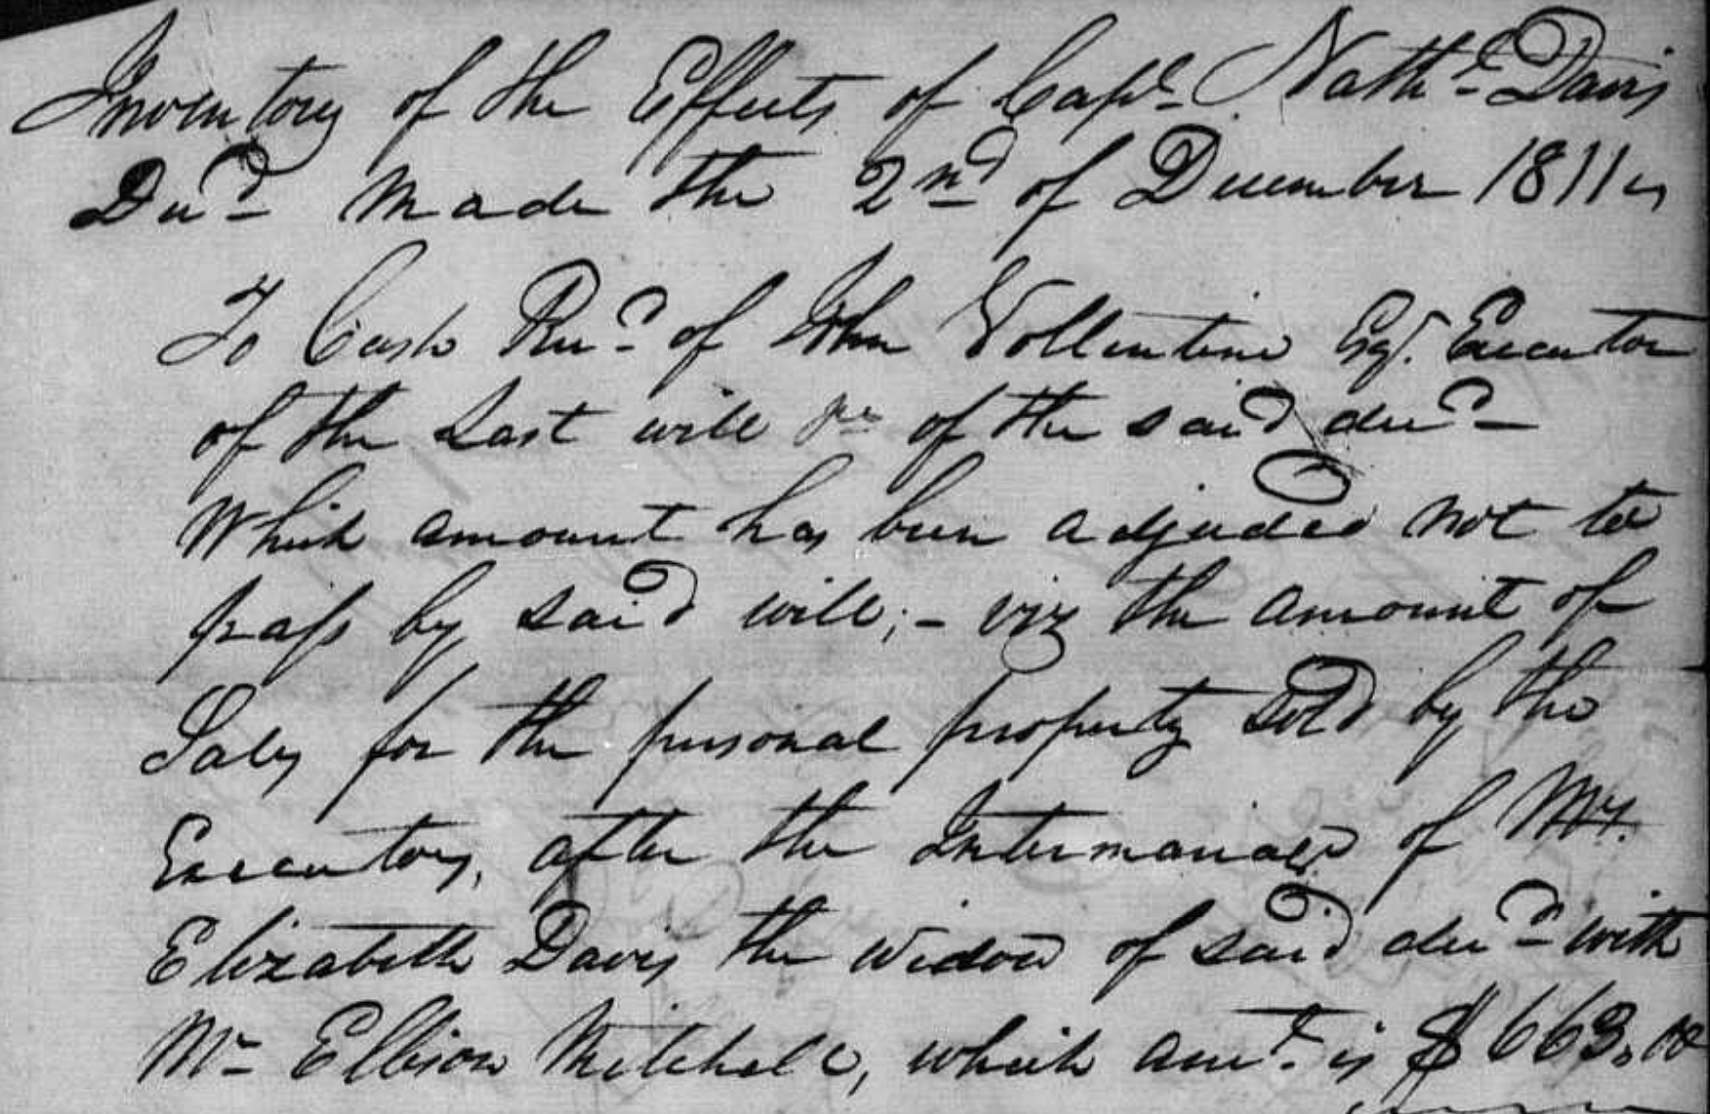 Inventory of the Effects of Capt. Nathl. Davis
Decd. made the 2nd of December 1811
To Cash Recd. of John Vollentine Esqr. Executor
of the Last will &c of the said decd.
Which amount has been adjuded not to
pass by said will; - viz the amount of
Sales for the personal property sold by the
Executors, after the Intermariage of Mrs.
Elizabeth Davis the widow of said decd. with
Mr. Mitchell, which amt. is $663.